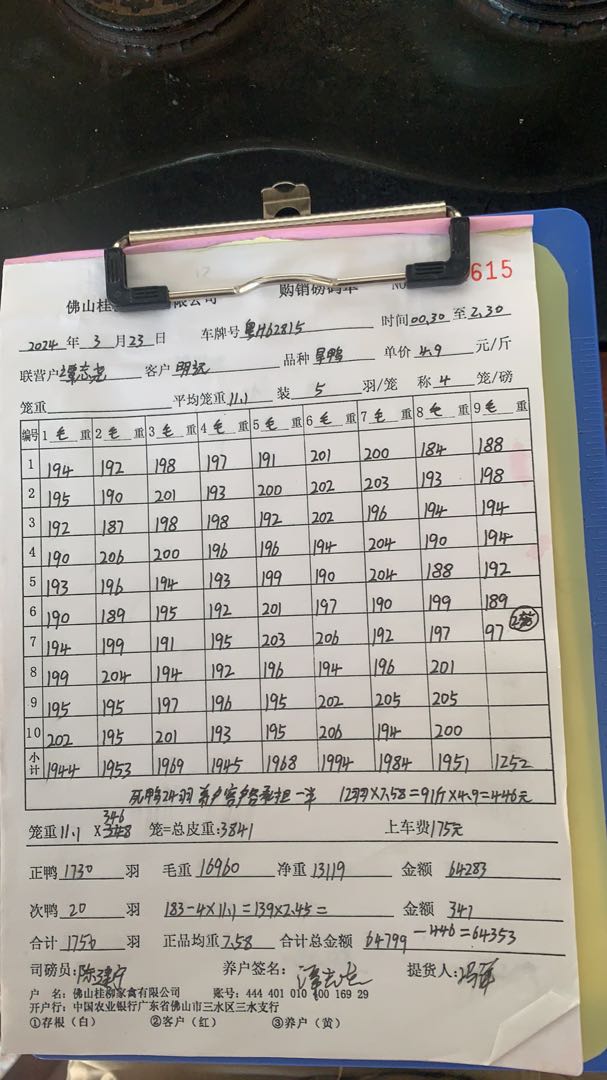 佛山桂 限公司 购销磅码单 NO 615
2024 年 3 月 23 日 车牌号 粤H62815 时间 00.30 至 2.30
联营户 谭志尧 客户 明记 品种 旱鸭 单价 4.9 元/斤
笼重 平均笼重 11.1 装 5 羽/笼 称 4 笼/磅
编号 1 毛 重 2 毛 重 3 毛 重 4 毛 重 5 毛 重 6 毛 重 7 毛 重 8 毛 重 9 毛 重
1 194 192 198 197 191 201 200 184 188
2 195 190 201 193 200 202 203 193 198
3 192 187 198 198 192 202 196 194 194
4 190 206 200 196 196 194 204 190 194
5 193 196 194 193 199 190 204 188 192
6 190 189 195 192 201 197 190 199 189
7 194 199 191 195 203 206 192 197 97 2笼
8 199 204 194 192 196 194 196 201
9 195 195 197 196 195 202 205 205
10 202 195 201 193 195 206 194 200
小计 1944 1953 1969 1945 1968 1994 1984 1951 1252
死鸭24羽 养户客户各承担一半 12羽×7.58=91斤×4.9=446元
346
笼重 11.1 × 348 笼=总皮重:3841 上车费 175元
正鸭 1730 羽 毛重 16960 净重 13119 金额 64283
次鸭 20 羽 183-4×11.1=139×2.45= 金额 341
合计 1750 羽 正品均重 7.58 合计总金额 64799-446=64353
司磅员: 陈建宁 养户签名: 提货人:
户 名:佛山桂柳家禽有限公司 账号:444 401 010 400 169 29
开户行:中国农业银行广东省佛山市三水区三水支行
①存根(白) ②客户(红) ③养户(黄)